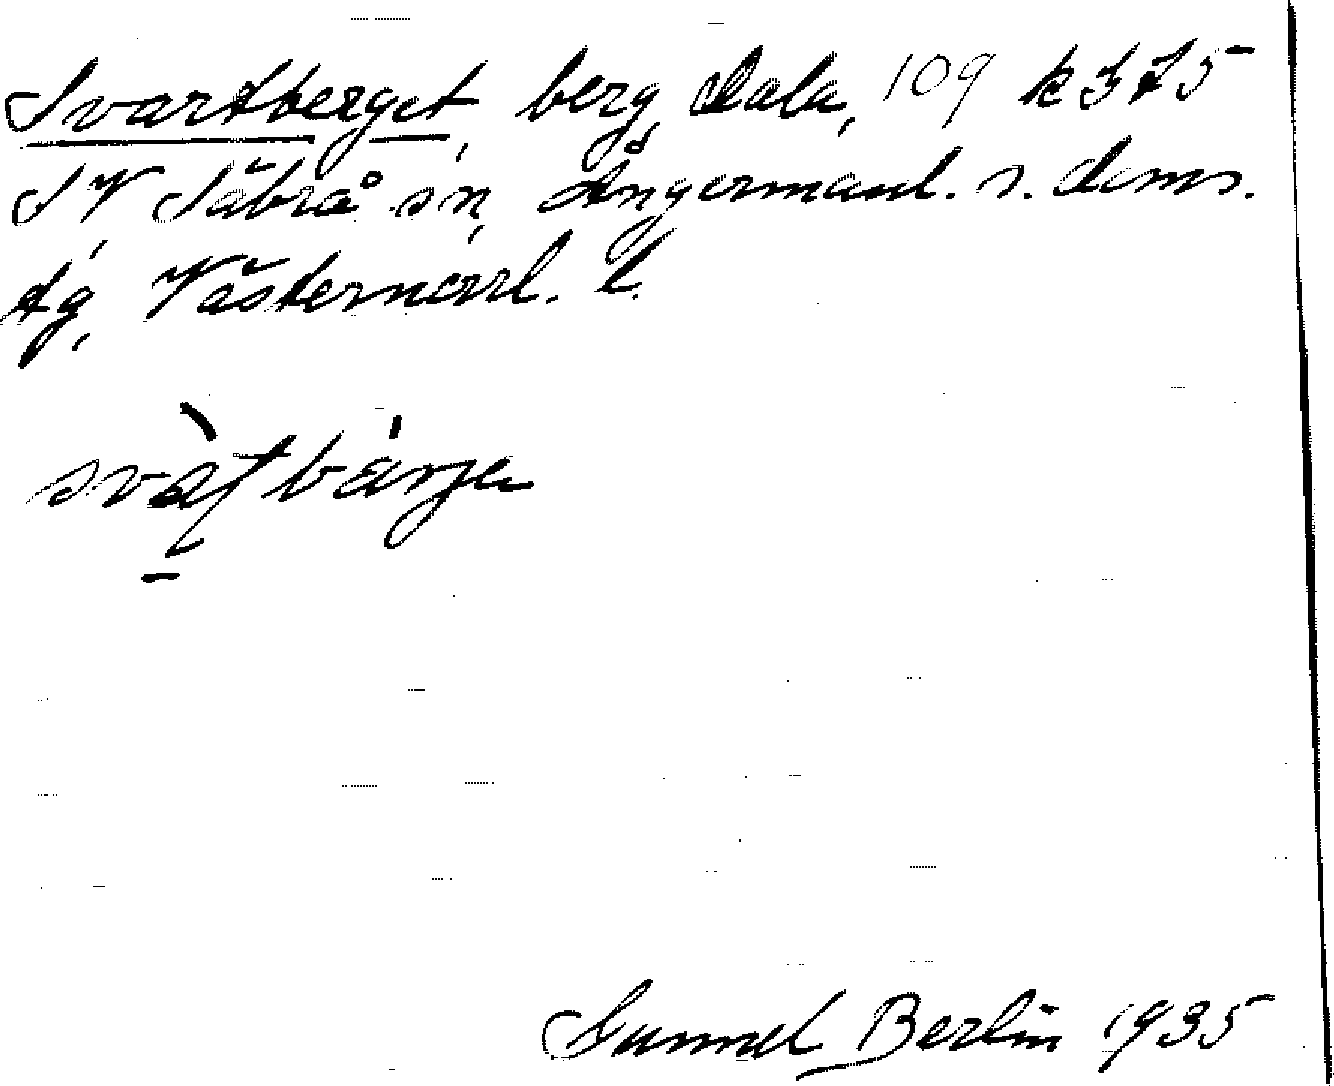 Svartberget, berg, Dala, 109 k 375
SV Säbrå sn, Ångermanl. s. doms.
tg, Västernorrl. l.
Gunnel Berlin 1935